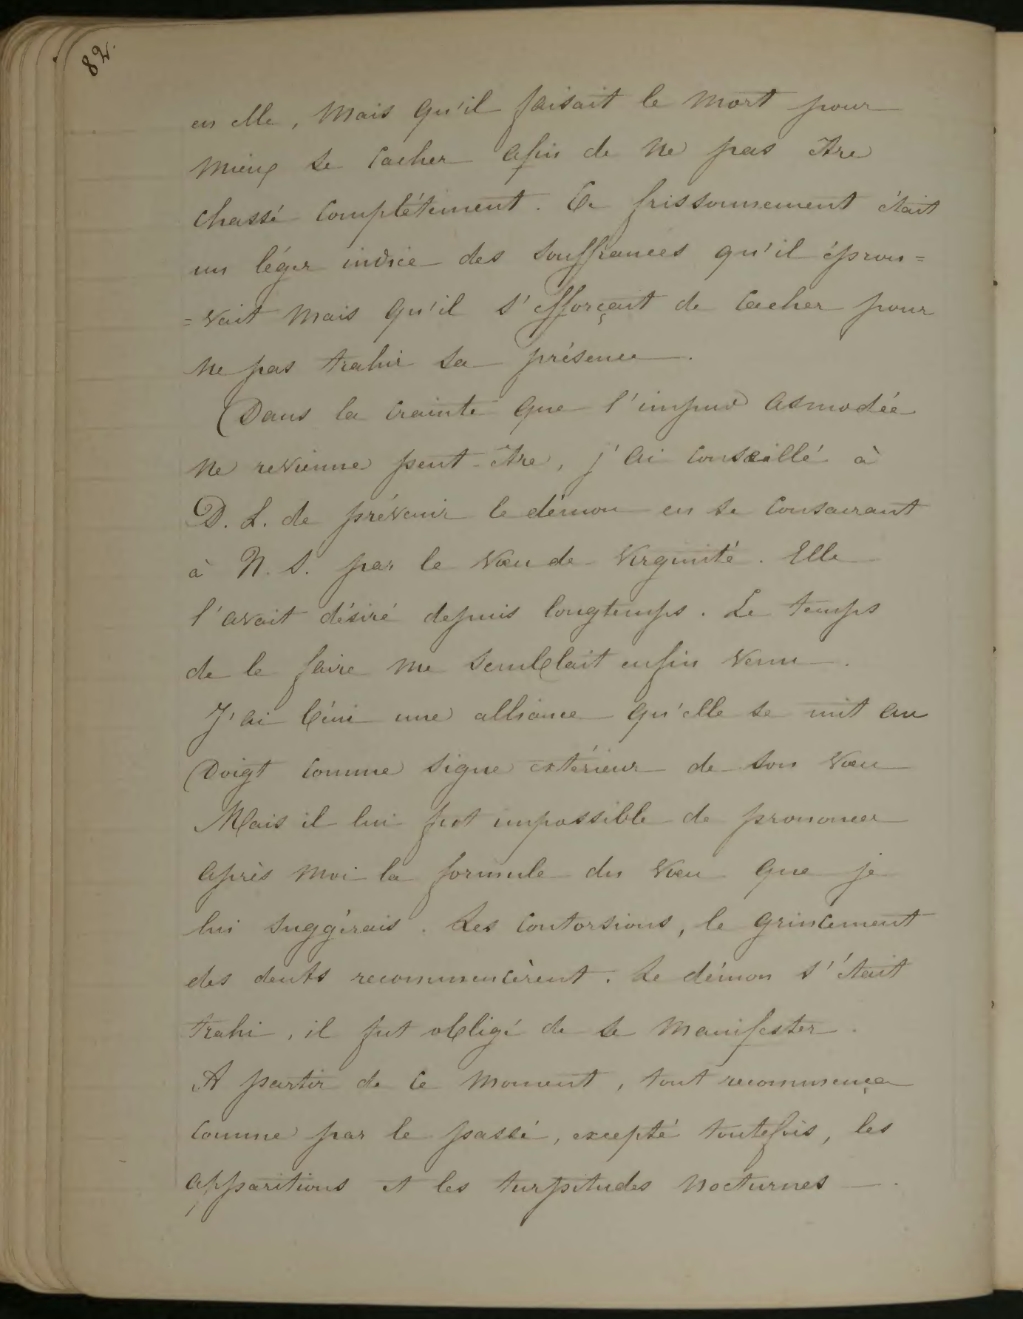 82.
en elle, Mais qu'il faisait le Mort pour
Mieux se cacher afin de Ne pas être
chassé complétement. Ce frissonnement était
un léger indice des souffrances qu'il éprou=
=vait Mais qu'il s'efforçait de cacher pour
Ne pas trahir sa présence.
Dans la crainte que l'impur Asmodée
Ne revienne peut-être, j'ai conseillé à
D. L. de prévenir le démon en se consacrant
à N. S. par le Vœu de Virginité. Elle
l'avait désiré depuis longtemps. Le temps
de le faire me semblait enfin Venu.
J'ai béni une alliance qu'elle se mit au
Doigt comme signe extérieur de son Vœu
Mais il lui fut impossible de prononcer
après Moi la formule du Vœu que je
lui suggérais. Les contorsions, le grincement
des dents recommencèrent. Le démon s'était
trahi, il fut obligé de se Manifester.
A partir de ce Moment, tout recommença
comme par le passé, excepté toutefois, les
apparitions et les turpitudes Nocturnes.